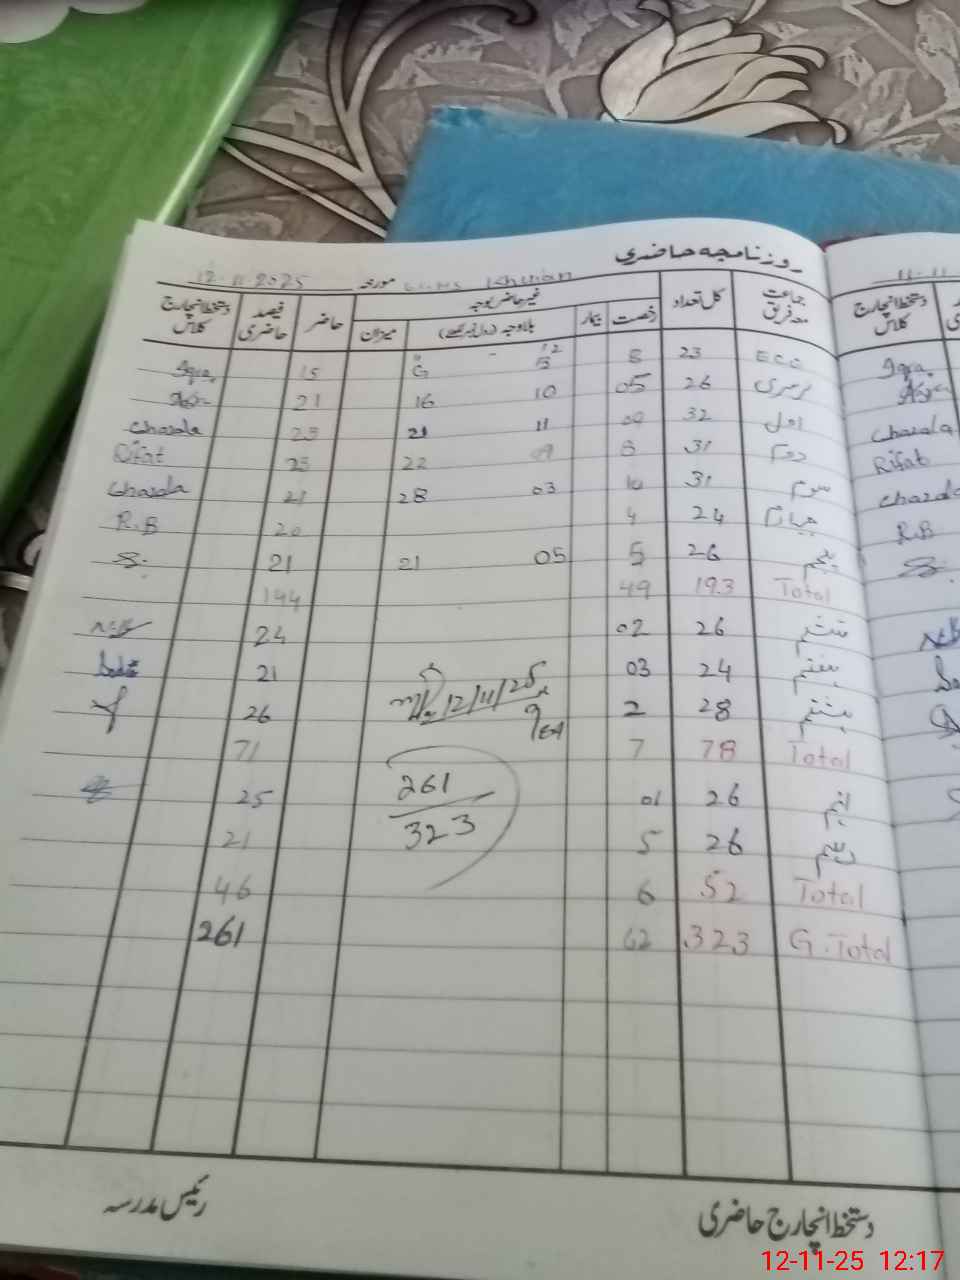 روزنامچہ حاضری
مورخہ 12.11.2025
جماعت معہ فریق کل تعداد غیر حاضر بوجہ حاضر فیصد حاضری دستخط انچارج کلاس
رخصت بیمار بلاوجہ (رول نمبر لکھئے) میزان
ECC 23 8 15 Iqra
نرسری 26 05 10 16 21
اول 32 09 11 21 23 Ghazala
دوم 31 8 09 22 23 Rifat
سوم 31 10 03 28 21 Ghazala
چہارم 24 4 20 R.B
پنجم 26 5 05 21 21
Total 193 49 144
ششم 26 02 24
ہفتم 24 03 21
ہشتم 28 2 26
12/11/25
Total 78 7 71
نہم 26 01 25
261
323
دہم 26 5 21
Total 52 6 46
G.Total 323 62 261
دستخط انچارج حاضری رئیس مدرسہ
11.11
دستخط انچارج کلاس
Iqra
Ghazala
Rifat
Ghazala
R.B
12-11-25 12:17